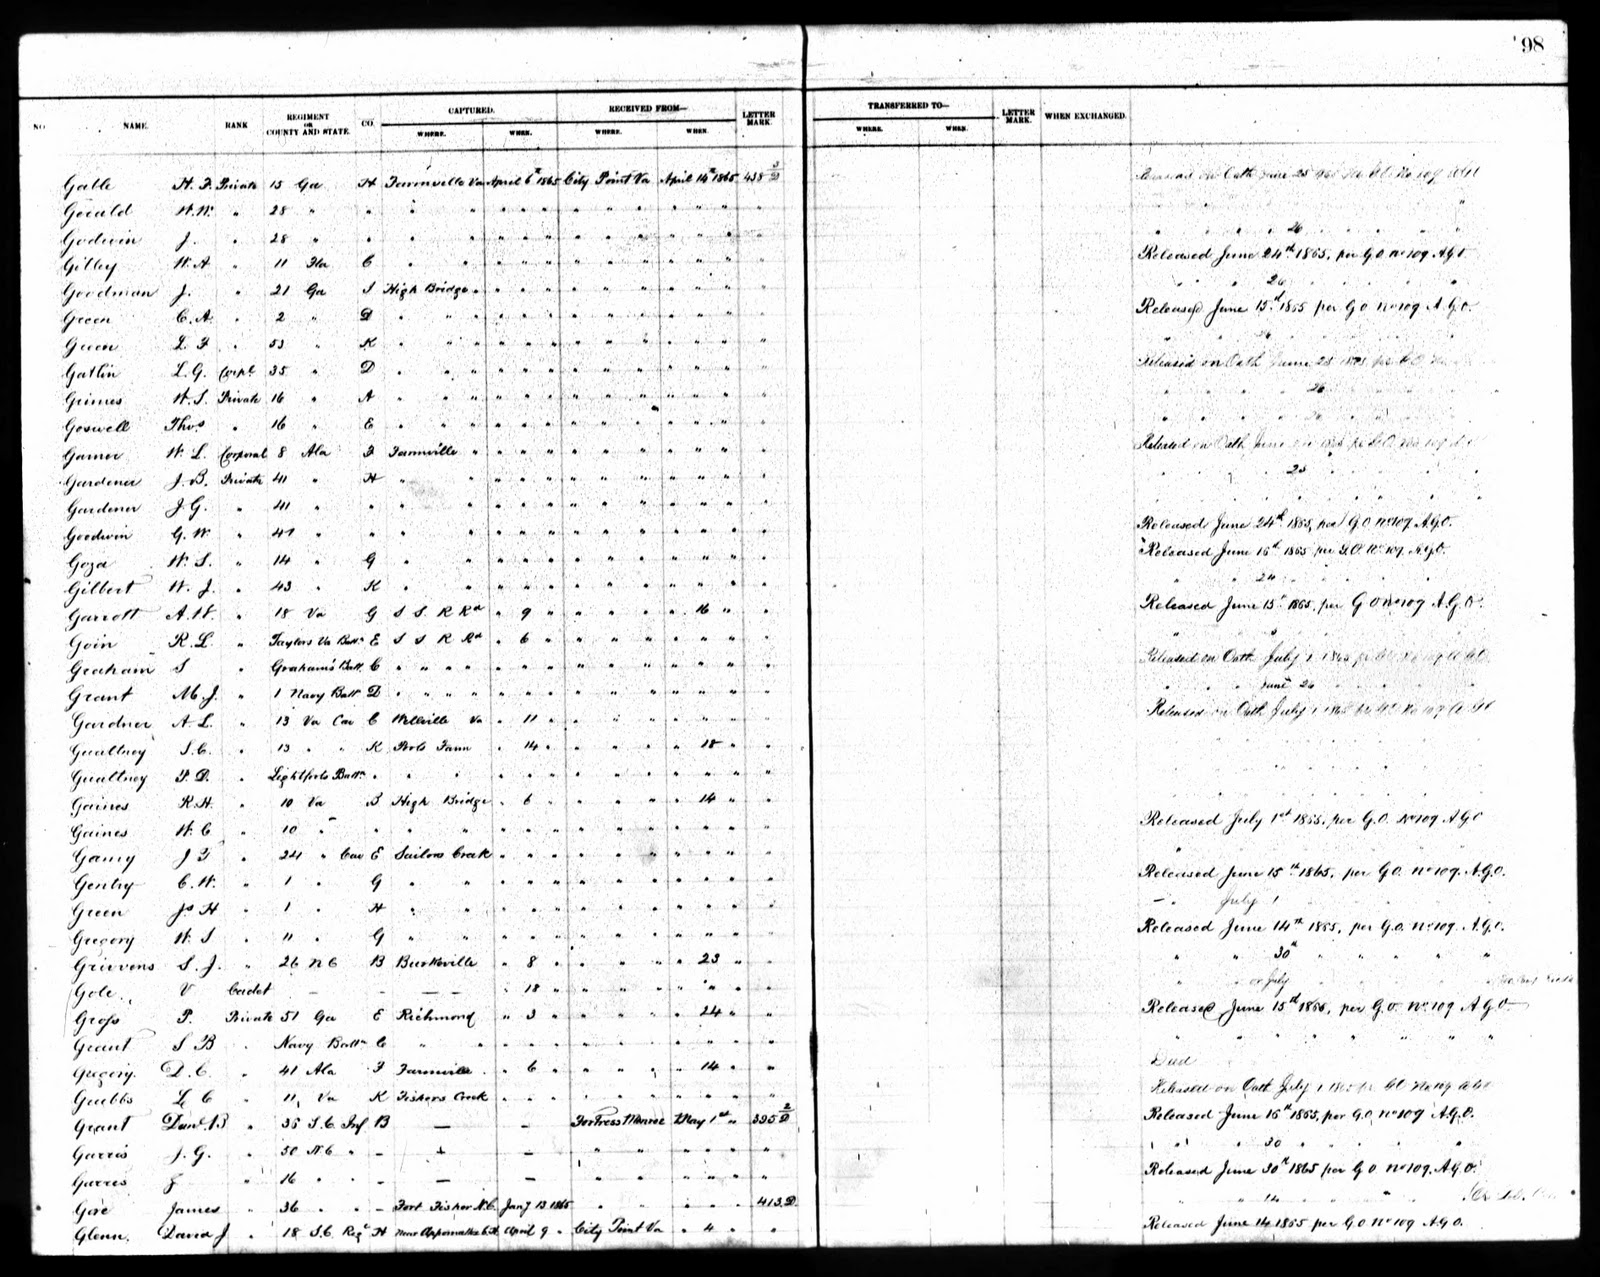 '98
NO. NAME. RANK REGIMENT OR COUNTY AND STATE. CO. CAPTURED. WHERE. WHEN. RECEIVED FROM— WHERE. WHEN. LETTER MARK. TRANSFERRED TO— WHERE. WHEN. LETTER MARK. WHEN EXCHANGED.
Gable H. F. Private 15 Ga H Farmville Va April 6th 1865 City Point Va April 14th 1865 438 3/D on Oath June 25
W.W. " 28 " " " " " " " " " " " " " "
Godwin J. " 28 " " " " " " " " " " " " " " 26
Gilley W. A " 11 Fla C " " " " " " " " " " " " Released June 24th 1865, per G.O. No 109 A.G.O
Goodman J. " 21 Ga I High Bridge " " " " " " " " " " " 26
Green C. A. " 2 " D " " " " " " " " " " " " Released June 15th 1865 per G.O No 109 A.G.O.
Green L. F " 53 " K " " " " " " " " " " " "
Gatlin L. G. Corpl 35 " D " " " " " " " " " " " " Released on Oath June 25
Grimes W. S. Private 16 " A " " " " " " " " " " " " 26
Goswell Thos " 16 " E " " " " " " " " " " " "
Garner W. L. Corporal 8 Ala F Farmville " " " " " " " " " " " Released on Oath June
Gardener J. B. Private 41 " H " " " " " " " " " " " " 25
Gardener J. G. " 41 " " " " " " " " " " " " " "
Goodwin G. W. " 41 " " " " " " " " " " " " " " Released June 24th 1865, per G.O No 109, A.G.O.
Goza W. S. " 14 " G " " " " " " " " " " " " Released June 16th 1865 per G.O. No 109. A.G.O.
Gilbert W. J. " 43 " K " " " " " " " " " " " " 24
Garrott A. W. " 18 Va G S S. R Rd " 9 " " " " " 16 " " Released June 15th 1865, per G O No 109 A.G.O.
Goin R. L. " Taylors Va Batt. E S S R Rd " 6 " " " " " " " "
Graham S " Grahams Batt. C " " " " " " " " " " " " Released on Oath July 1 1865
Grant M. J. " 1 Navy Batt D " " " " " " " " " " " " June 26
Gardner A. L. " 13 Va Cav C Wellville Va " 11 " " " " " " " " Released on Oath July 1
Gwaltney S. C. " 13 " " K " 14 " " " " " 18 " "
Gwaltney P. D. " Lightfoots Batt. " " " " " " " " " " " " "
Gaines R. H. " 10 Va B High Bridge " 6 " " " " " 14 " "
Gaines W. C " 10 " " " " " " " " " " " " " " Released July 1st 1865, per G.O. No 109 A.G.O
J " 24 " Cav E Sailors Creek " " " " " " " " " "
Gentry C. W. " 1 " G " " " " " " " " " " " " Released June 15th 1865, per G.O. No 109. A.G.O.
Green Js H " 1 " H " " " " " " " " " " " " July 1
Gregory W. S " 11 " G " " " " " " " " " " " " Released June 14th 1865, per G.O. No 109. A.G.O.
Grievens S. J. " 26 N C B Burkeville " 8 " " " " " 23 " " 30th
Gole. V Cadet — — — " 18 " " " " " " " " July
Gross P. Private 51 Ga E Richmond " 3 " " " " " 24 " " Released June 15th 1865, per G.O No 109 A.G.O
Grant S B " Navy Batt. C " " " " " " " " " " " "
Gregory. D. C. " 41 Ala F Farmville " 6 " " " " " 14 " " Died
Grubbs L C " 11, Va K Fishers Creek " " " " " " " " " " Released on Oath July 1
Grant Danl. B " 35 S. C. Inf B — — Fortress Monroe May 1st " 395 2/D Released June 16th 1865, per G.O No 109 A.G.O.
Garris J. G. " 50 N. C " — — — " " " " " " 30
Garres " 16 " " — — — " " " " " " Released June 30th 1865 per G O No 109. A.G.O.
Gore James " 36 " " — Fort Fisher N.C. Jany 13 1865 " " " " " 413 D. 14
Glenn. David J " 18 S. C. Reg H Near Appomattox C.H. April 9 " City Point Va " 4 " " Released June 14 1865 per G.O No 109 A.G.O.